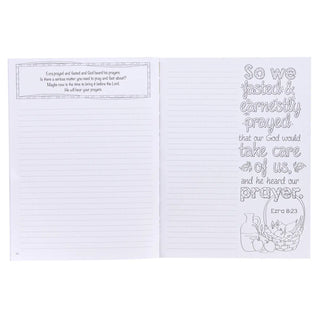 Ezra prayed and fasted and God heard his prayers.
Is there a serious matter you need to pray and fast about?
Maybe now is the time to bring it before the Lord.
He will hear your prayers.
So we
fasted &
earnestly
prayed
that our God would
take care
of us,
and he heard our
prayer.
Ezra 8:23